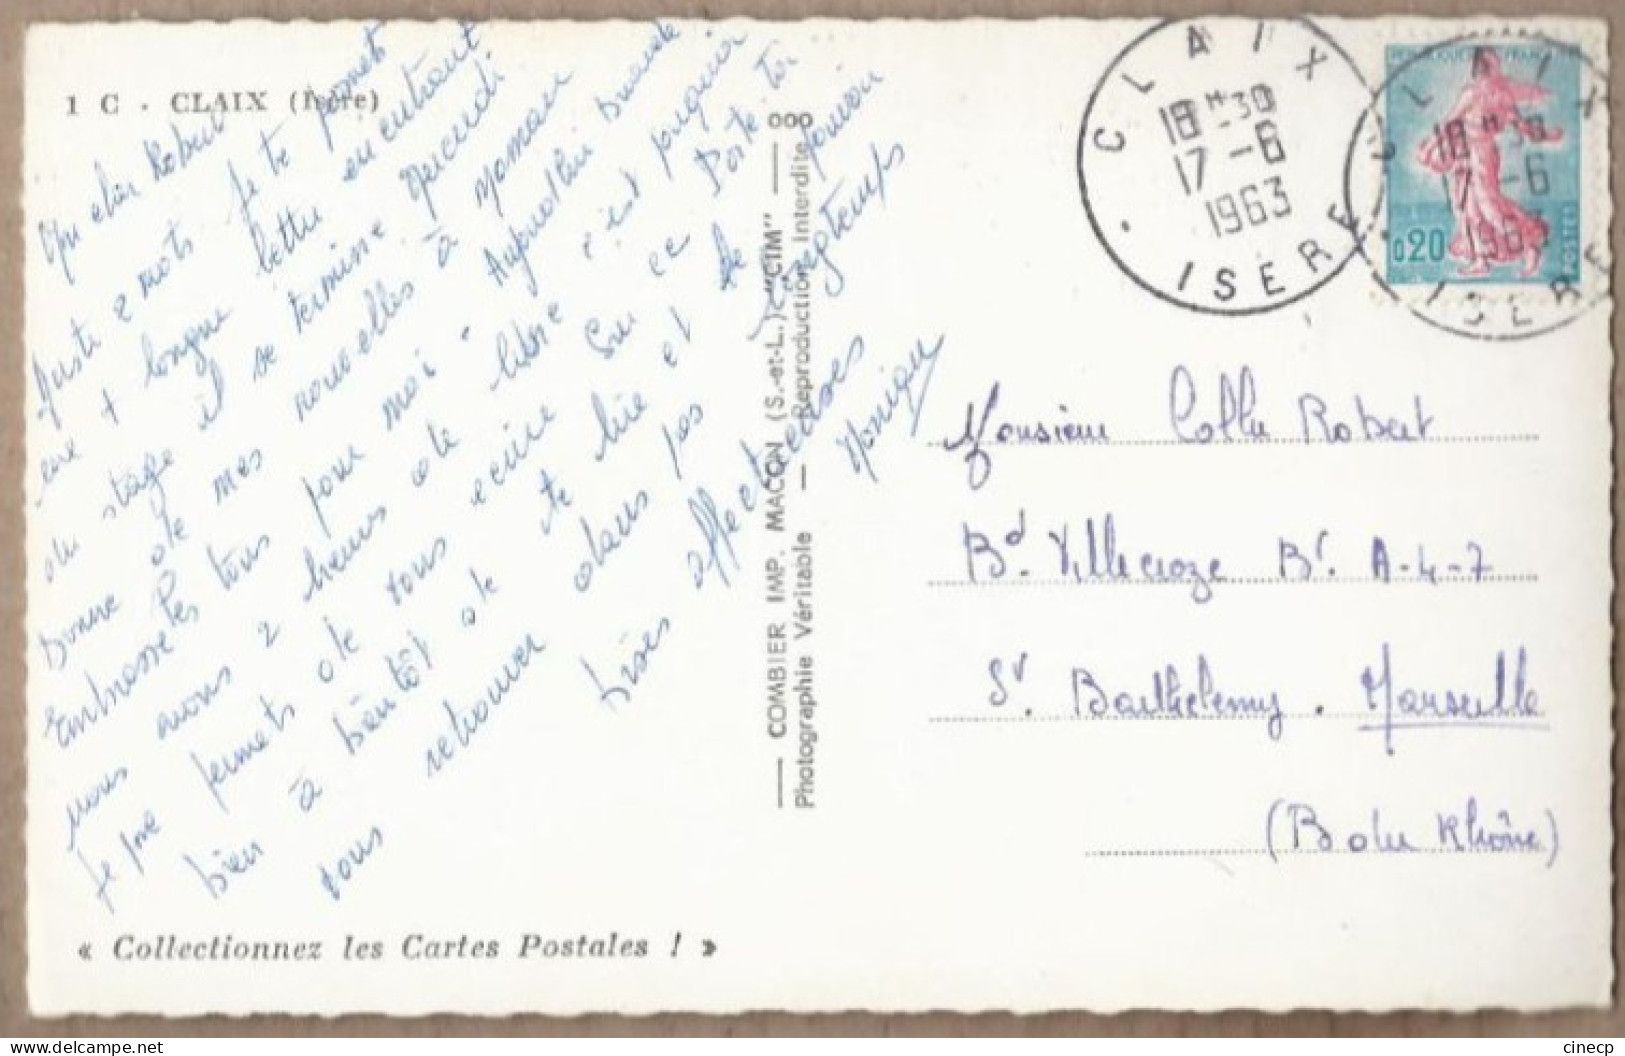 1 C - CLAIX (Isère)
Mon cher Robert
Juste 2 mots je te promets
une + longue lettre en rentrant
du stage il se termine Mercredi
Donne de mes nouvelles à Maman
Embrasse les tous pour moi. Aujourd'hui Dimanche
nous avons 2 heures de libre c'est pourquoi
je me permets de vous écrire Sur ce Porte toi
bien à bientôt de te lire et de pouvoir
vous retrouver dans pas longtemps
bises affectueuses
Monique
« Collectionnez les Cartes Postales ! »
COMBIER IMP. MACON (S.-et-L.) "CIM"
Photographie Véritable — Reproduction Interdite
ooo
CLAIX
18H30
17-6
1963
ISERE
REPUBLIQUE FRANCAISE
0,20
POSTES
CLAIX
18H30
17-6
1963
ISERE
Monsieur Robert
Bd. Villecroze Bt. A-4-7
St. Barthelemy. Marseille
(B du Rhône)
cinecp